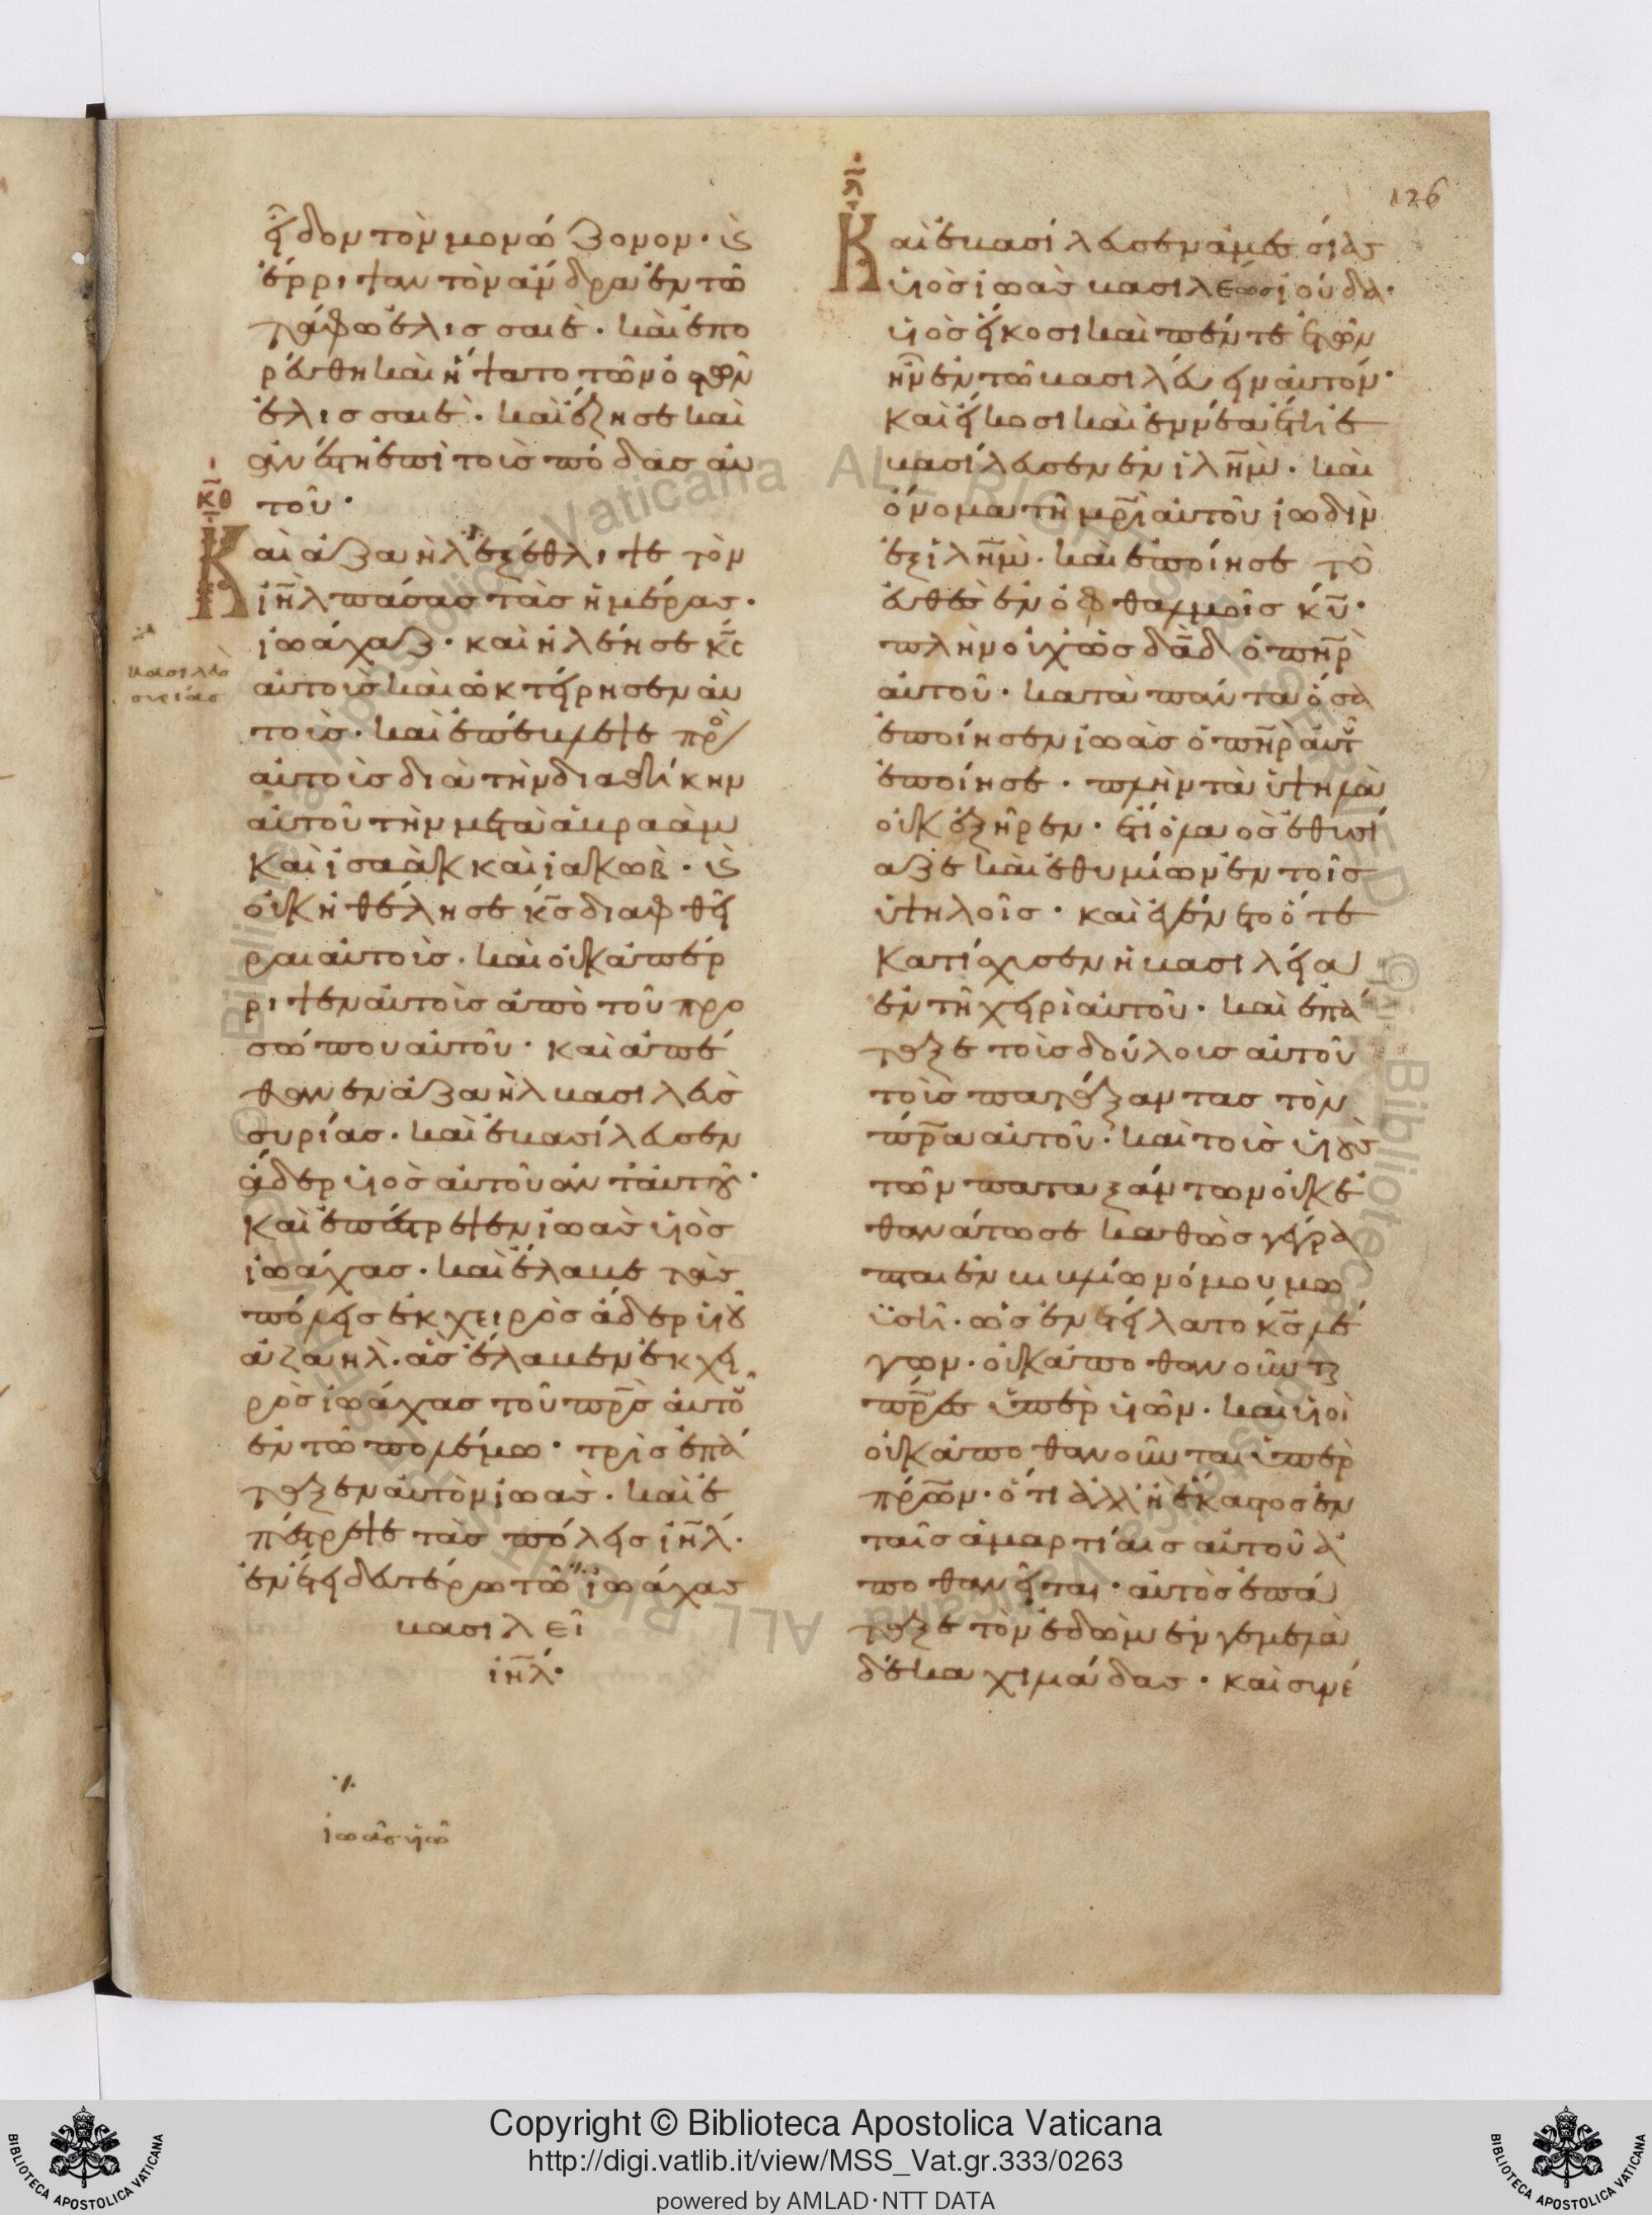 126
εἶδον τὸν μονόζονον· (καὶ)
ἔρριψαν τὸν ἄνδρα ἐν τῶ
τάφω ἐλισσαιὲ· καὶ ἐπο
ρεύθη καὶ ἥψατο τῶν ὀστῶν
ἐλισσαιὲ· καὶ ἔζησε καὶ
ἀνέστη ἐπὶ τοὺς πόδας αὐ
τοῦ·
κ̅θ̅
Καὶ ἀζαὴλ ἐξέθλιψε τὸν
ἰη̅λ πάσας τὰς ἡμέρας·
ἰωάχαζ· καὶ ἠλέησε κ̅ς̅
βασιλεὺ
συρίας
αὐτοὺς καὶ ὠκτείρησεν αὐ
τοὺς· καὶ ἐπέβλεψε πρὸ
αὐτοὺς διὰ τὴν διαθήκην
αὐτοῦ τὴν μετὰ ἀβραὰμ
καὶ ἰσαὰκ καὶ ἰακώβ· (καὶ)
οὐκ ἠθέλησε κ̅ς̅ διαφθεῖ
ραι αὐτοὺς· καὶ οὐκ ἀπέρ
ριψεν αὐτοὺς ἀπὸ τοῦ προ
σώπου αὐτοῦ· καὶ ἀπέ
θανεν ἀζαὴλ βασιλεὺς
συρίας· καὶ ἐβασίλευσεν
ἄδερ υἱὸς αὐτοῦ ἀντ' αὐτοῦ·
καὶ ἐπέστρεψεν ἰωὰς υἱὸς
ἰωάχας· καὶ ἔλαβε τὰς
πόλεις ἐκ χειρὸς ἄδερ υἱοῦ
ἀζαὴλ· ἃς ἔλαβεν ἐκ χει
ρὸς ἰωάχας τοῦ π̅ρ̅ς̅ αὐτοῦ
ἐν τῶ πολέμω· τρὶς ἐπά
ταξεν αὐτὸν ἰωὰς· καὶ ἐ
πέστρεψε τὰς πόλεις ἰη̅λ·
ἐν ἔτει δευτέρω τῶ ἰωάχας
βασιλεῖ
ἰη̅λ·
ἰωὰς υἱῶ
λ̅
Καὶ ἐβασίλευσεν ἀμεσίας
υἱὸς ἰωὰς βασιλέως ἰούδα·
υἱὸς εἴκοσι καὶ πέντε ἐτῶν
ἦν ἐν τῶ βασιλεύειν αὐτόν·
καὶ εἴκοσι καὶ ἐννέα ἔτη ἐ
βασίλευσεν ἐν ἰλη̅μ· καὶ
ὄνομα τῆ μ̅ρ̅ὶ αὐτοῦ ἰωδιν
ἐξ ἰλη̅μ· καὶ ἐποίησε τὸ
εὐθὲς ἐν ὀφθαλμοῖς κ̅υ̅·
πλὴν οὐχ ὡς δα̅δ ὁ π̅η̅ρ̅
αὐτοῦ· κατὰ πάντα ὅσα
ἐποίησεν ἰωὰς ὁ π̅η̅ρ̅ αὐτοῦ
ἐποίησε· πλὴν τὰ ὑψηλὰ
οὐκ ἐξῆρεν· ἔτι ὁ λαὸς ἐθυσί
αζε καὶ ἐθυμίων ἐν τοῖς
ὑψηλοῖς· καὶ ἐγένετο ὅτε
κατίσχυσεν ἡ βασιλεία
ἐν τῆ χειρὶ αὐτοῦ· καὶ ἐπά
ταξε τοὺς δούλους αὐτοῦ
τοὺς πατάξαντας τὸν
π̅ρ̅α αὐτοῦ· καὶ τοὺς υἱοὺς
τῶν παταξάντων οὐκ ἐ
θανάτωσε καθὼς γέγρα
πται ἐν βιβλίω νόμου μω
ϋσῆ· ὡς ἐνετείλατο κ̅ς̅ λέ
γων· οὐκ ἀποθανοῦνται
π̅ρ̅ες ὑπὲρ υἱῶν· καὶ υἱοὶ
οὐκ ἀποθανοῦνται ὑπὲρ
π̅ρ̅ων· ὅτι ἀλλ' ἢ ἕκαστος ἐν
ταῖς ἁμαρτίαις αὐτοῦ ἀ
ποθανεῖται· αὐτὸς ἐπά
ταξε τὸν ἐδὼμ ἐν γεμελὰ
δέκα χιμάδας· καὶ συνέ
Copyright © Biblioteca Apostolica Vaticana
http://digi.vatlib.it/view/MSS_Vat.gr.333/0263
powered by AMLAD·NTT DATA